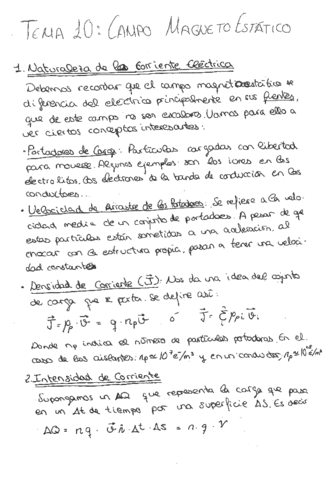 TEMA 10: CAMPO MAGNETOESTÁTICO
1. Naturaleza de la Corriente Eléctrica
Debemos recordar que el campo magnetoestático se
diferencia del eléctrico principalmente en sus fuentes,
que de este campo no son escalares. Vamos para ello a
ver ciertos conceptos interesantes:
· Portadores de Carga: Partículas cargadas con libertad
para moverse. Algunos ejemplos son los iones en los
electrolitos, los electrones de la banda de conducción en los
conductores...
· Velocidad de Arrastre de los Portadores: Se refiere a la velo-
cidad media de un conjunto de portadores. A pesar de que
estas partículas están sometidas a una aceleración, al
chocar con la estructura propia, pasan a tener una veloci-
dad constante.
· Densidad de Corriente (J⃗): Nos da una idea del conjunto
de carga que se porta. Se define así:
J⃗ = ρp · v⃗ = q · np v⃗ ó J⃗ = Σ ρpi v⃗i
Donde np indica el número de partículas portadoras. En el
caso de los aislantes: np ≈ 10⁷ e⁻/m³ y en un conductor, np ≈ 10²⁸ e⁻/m³
2. Intensidad de Corriente
Supongamos un ΔQ que representa la carga que pasa
en un Δt de tiempo por una superficie ΔS. Es decir
ΔQ = nq · v⃗ n̂ · Δt · ΔS = n · q · V